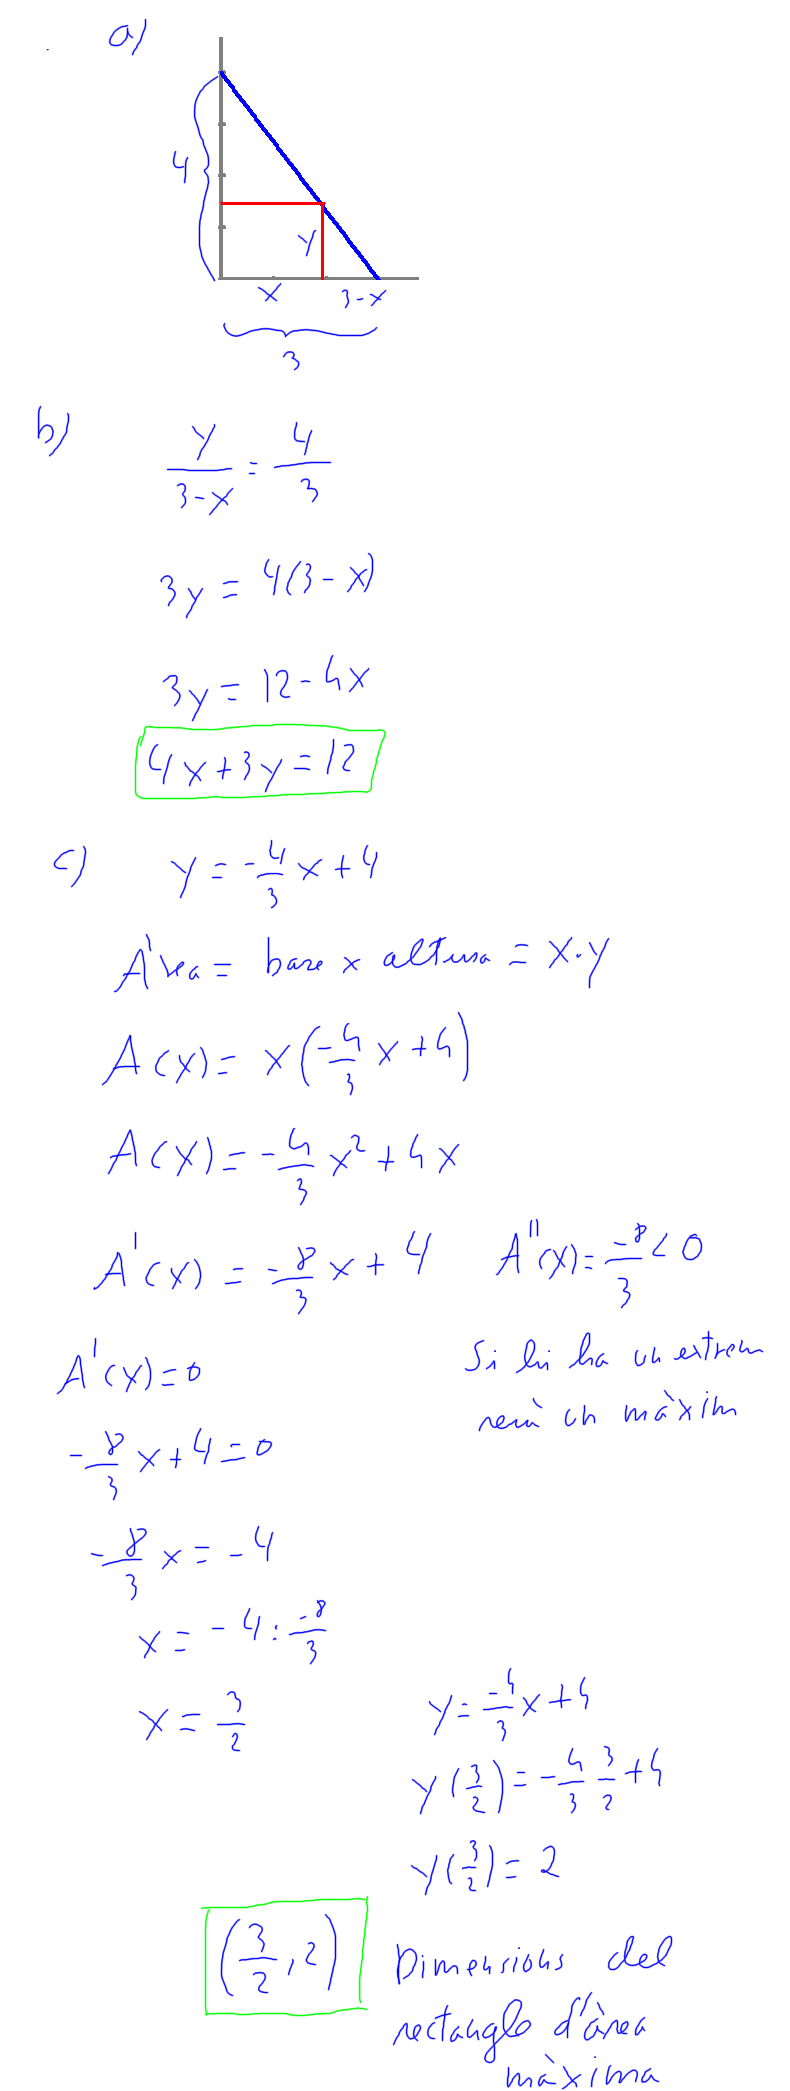 a)
4
y
x 3-x
3
b)
y/(3-x) = 4/3
3y = 4(3-x)
3y = 12-4x
4x+3y=12
c) y = -4/3 x + 4
Àrea = base x altura = x·y
A(x) = x(-4/3 x + 4)
A(x) = -4/3 x² + 4x
A'(x) = -8/3 x + 4 A''(x) = -8/3 < 0
A'(x) = 0 Si hi ha un extrem
serà un màxim
-8/3 x + 4 = 0
-8/3 x = -4
x = -4 : -8/3
x = 3/2 y = -4/3 x + 4
y(3/2) = -4/3 3/2 + 4
y(3/2) = 2
(3/2, 2) Dimensions del
rectangle d'àrea
màxima